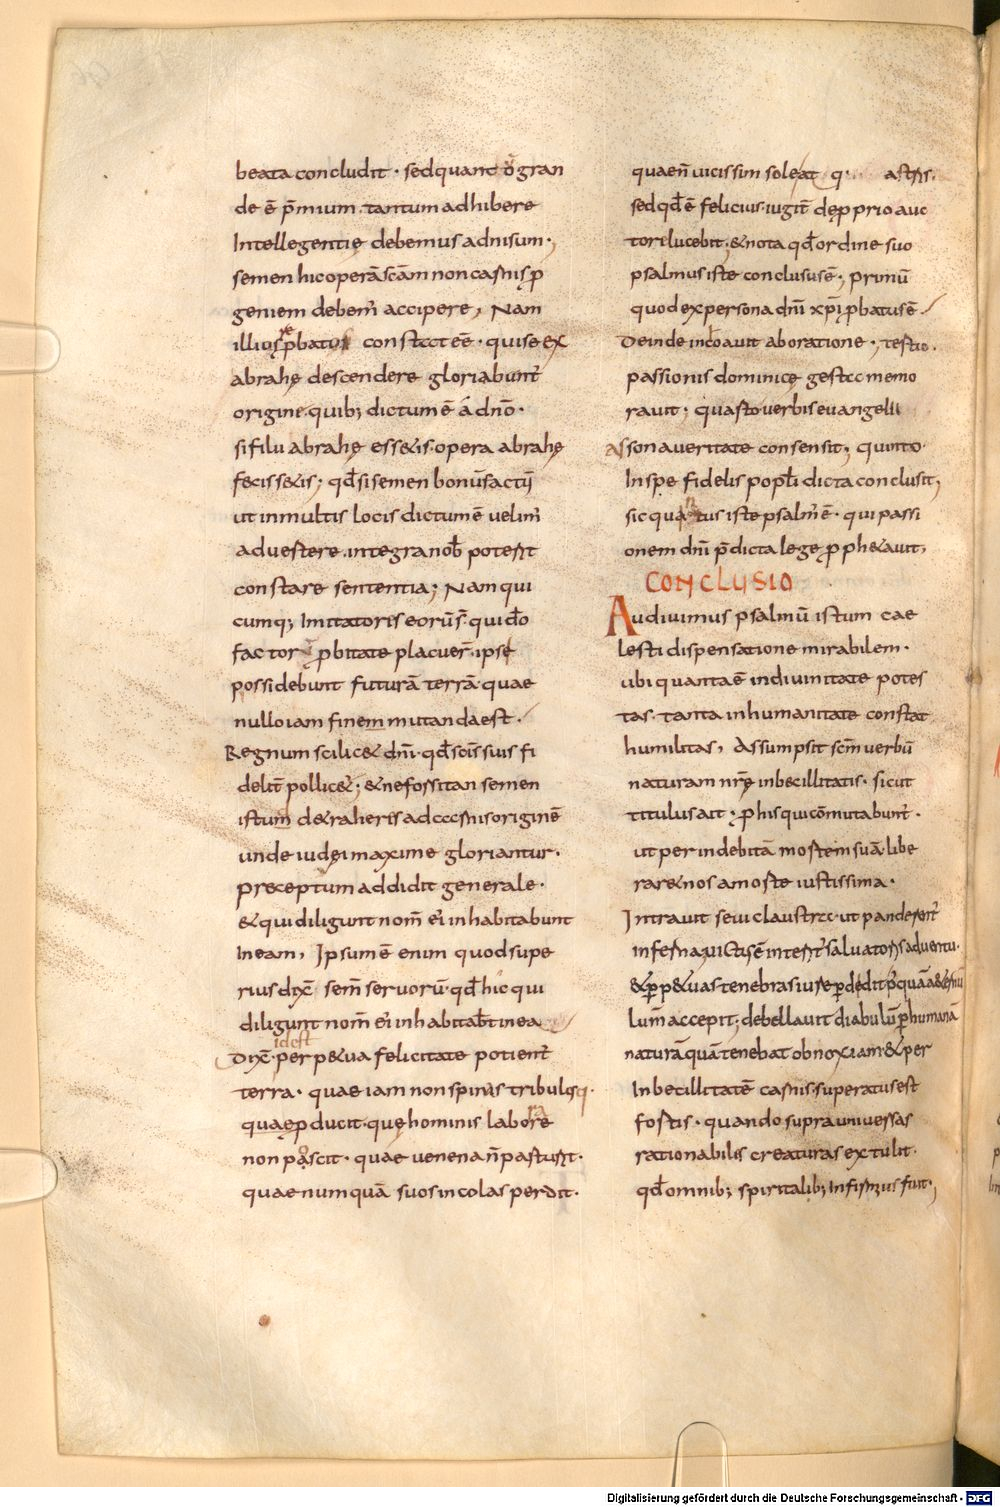 beata concludit · sed quanto gran
de ē p̄mium · tantum adhibere
Intellegentię debemus adnisum ·,
semen hic operā scām non carnis ꝓ
geniem debem̄ accipere, Nam
illius constat eē · qui se ex
abrahę descendere gloriabunt̄
origine · quib; dictum ē a dn̄o ·
si filii abrahę ess&is · opera abrahę
feciss&is; qd̄ si semen bonūs actus
ut in multis locis dictum ē velim̄
advertere · integra nob̄ poterit
constare sententia; Nam qui
cumq; Imitatoris eorū s̄ · qui dō
factori ꝓbitate placuer̄ · ipse
possidebunt futurā terrā · quae
nullo iam fine mutanda est ·
Regnum scilic& dn̄i · qd̄ scīs suis fi
delib; pollic&; & ne fossitan semen
istum d&raheris ad carnis originē
unde iudęi maxime gloriantur ·
preceptum addidit generale ·
& qui diligunt nom̄ ei' inhabitabunt
In eam, Ipsum ē enim quod supe
rius dix̄ sem̄ servorū · qd̄ hic qui
diligunt nom̄ ei' inhabitab̄t in ea
idest
Dix̄ · perp&ua felicitate potient̄
terra · quae iam non spinas tribulisq·
quae ꝓducit · quę hominis labore
non pascit · quae venena n̄ parturit ·
quae numquā suos incolas perdit ·
quae n̄ vicissim soleat q· astris,
sed qd̄ ē felicius · iugit̄ de ꝓprio auc
tore lucebit; & nota qd̄ ordine suo
psalmus iste conclusus ē; primū
quod ex persona dn̄i xp̄i ꝓbatus ē
Deinde incoavit ab oratione ·, tertio ·
passionis dominicę gesta memo
ravit; quarto verbis evangelii
assona veritate consensit, quinto
In spe fidelis pop̄li dicta conclusit,
sic quartus iste psalm̄ ē · qui passi
onem dn̄i p̄dicta lege ꝓph&avit,
CONCLUSIO
Audivimus psalmū istum cae
lesti dispensatione mirabilem ·
ubi quanta ē in divinitate potes
tas · tanta in humanitate constat
humilitas, Assumpsit scm̄ verbū
naturam nr̄ę inbecillitatis · sicut
titulus ait, ꝓ his qui cōmutabunt̄ ·
ut per indebitā mortem suā · libe
rar& nos a morte iustissima ·
Intravit sevi claustra · ut panderent̄
inferna, victus ē salvatoris adventu ·
& ꝑp&uas tenebras iure perdedit p'quā
lum̄ accepit; debellavit diabulū ꝑ humanā
naturā quā tenebat obnoxiam · & per
Inbecillitatē carnis · superatus est
fortis · quando supra universas
rationabilis creaturas extulit ·
qd̄ omnib; spiritalib; infirmius fuit,
Digitalisierung gefördert durch die Deutsche Forschungsgemeinschaft - DFG